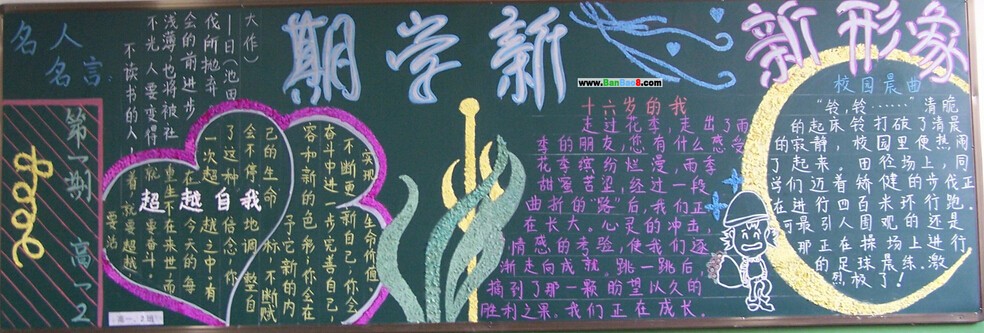 名人
名言
第一期
高一2
高一、2班
大作)
——日(池田
伐所抛弃
会的前进步
浅薄,也将被社
不光人要变得
不读书的人,
期学新
www.BanBao8.com
新形象
超越自我
生命价值,
不断更新自己,你会
奋斗中进一步完善自己,
容和新的色彩,你会在
十六岁的我
走过花季,走出了雨
季的朋友,您有什么感受
花季缤纷烂漫,雨季
甜蜜苦涩,经过一段
曲折的“路”后,我们正
在长大。心灵的冲击,
情感的考验,使我们逐
渐走向成熟。跳一跳后,
摘到了那一颗盼望以久的
胜利之果。我们正在成长。
校园晨曲
“铃,铃,……”清脆
的起床铃打破了清晨
的寂静,校园里便热闹
了起来。田径场上,同
学们迈着矫健的步伐正
在进行四百米环行跑。
可最引人围观的还是
那正在操场上进行
的足球晨练。激
烈极了!